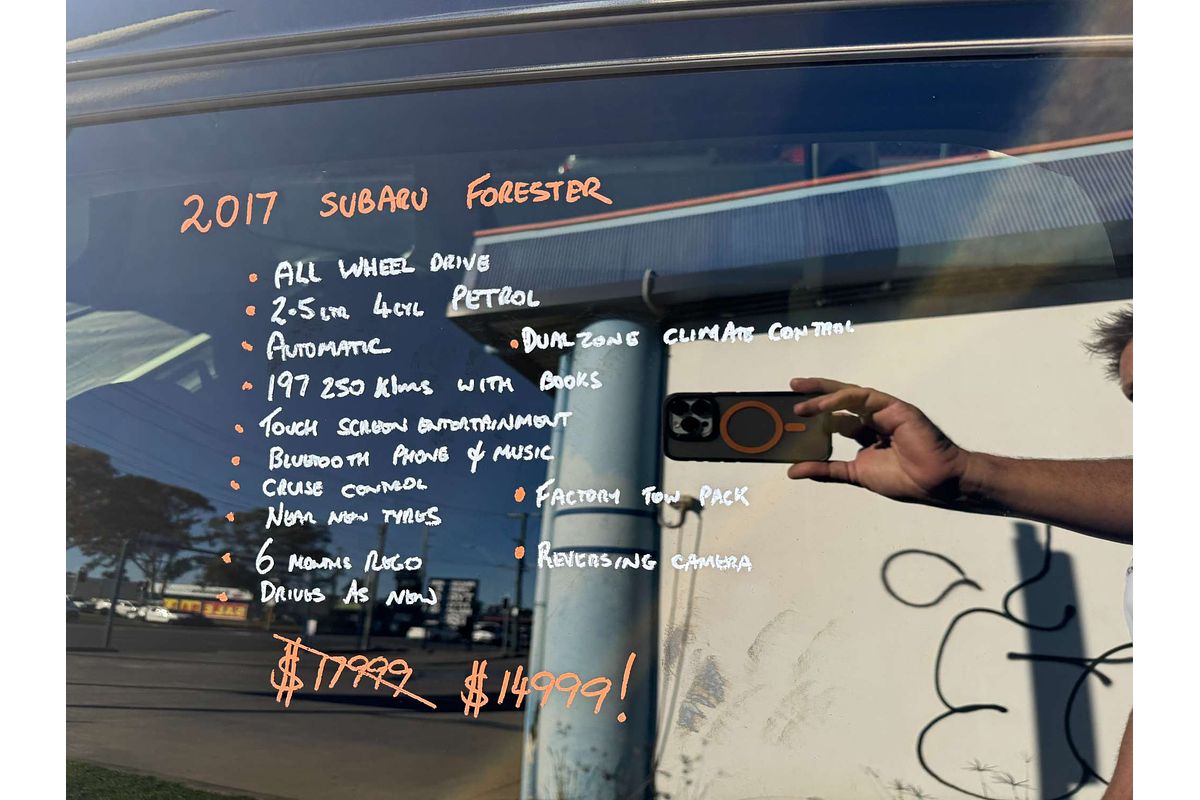 2017 SUBARU FORESTER
• ALL WHEEL DRIVE
• 2.5 LTR 4 CYL PETROL
• AUTOMATIC
• DUAL ZONE CLIMATE CONTROL
• 197 250 Klms WITH BOOKS
• TOUCH SCREEN ENTERTAINMENT
• BLUETOOTH PHONE & MUSIC
• CRUISE CONTROL
• FACTORY TOW PACK
• NEAR NEW TYRES
• 6 MONTHS REGO
• REVERSING CAMERA
• DRIVES AS NEW
$17999 $14999!
SALE